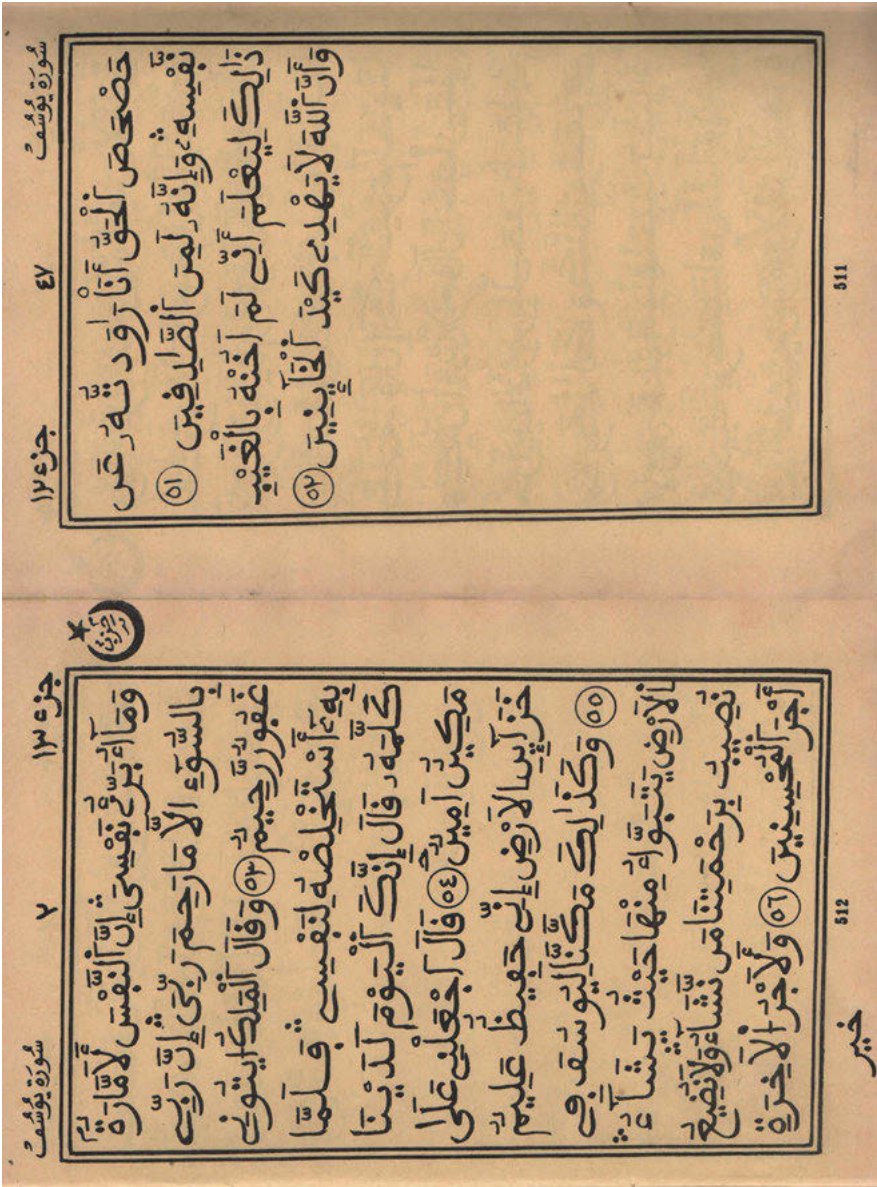 سُورَةُ يُوسُفَ ٤٧ جزء ١٢
حَصْحَصَ ٱلْحَقُّ أَنَا رَٰوَدتُّهُۥ عَن
نَّفْسِهِۦ وَإِنَّهُۥ لَمِنَ ٱلصَّٰدِقِينَ ٥١
ذَٰلِكَ لِيَعْلَمَ أَنِّے لَمَ اَخُنْهُ بِالْغَيْبِ
وَأَنَّ ٱللَّهَ لَا يَهْدِے كَيْدَ ٱلْخَآئِنِينَ ٥٢
511
جزء ١٣ ٢ سُورَةُ يُوسُفَ
وَمَآ أُبَرِّئُ نَفْسِيَ إِنَّ ٱلنَّفْسَ لَأَمَّارَةُۢ
بِالسُّوٓءِ الَّا مَا رَحِمَ رَبِّيَ إِنَّ رَبِّے
غَفُورٌ رَّحِيمٌ ٥٣ وَقَالَ ٱلْمَلِكُ ٱيتُونِے
بِهِۦٓ أَسْتَخْلِصْهُ لِنَفْسِے فَلَمَّا
كَلَّمَهُۥ قَالَ إِنَّكَ ٱلْيَوْمَ لَدَيْنَا
مَكِينٌ اَمِينٌ ٥٤ قَالَ ٱجْعَلْنِے عَلَىٰ
خَزَآئِنِ اِ۬لَارْضِ إِنِّے حَفِيظٌ عَلِيمٌ
٥٥ وَكَذَٰلِكَ مَكَّنَّا لِيُوسُفَ فِے
اِ۬لَارْضِ يَتَبَوَّأُ مِنْهَا حَيْثُ يَشَآءُ
نُصِيبُ بِرَحْمَتِنَا مَن نَّشَآءُ وَلَا نُضِيعُ
أَجْرَ ٱلْمُحْسِنِينَ ٥٦ وَلَأَجْرُ اُ۬لَاخِرَةِ
512
خير